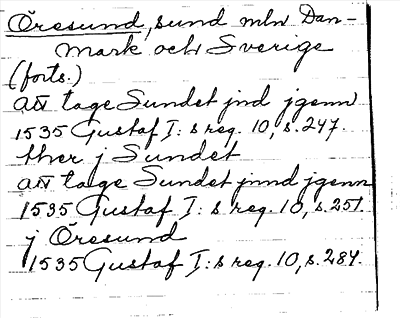 Öresund, sund mln Dan-
mark och Sverige
(forts.)
att tage Sundet jnd jgenn
1535 Gustaf I:s reg. 10, s. 247.
ther j Sundet
att tage Sundet jnnd jgenn
1535 Gustaf I:s reg. 10, s. 251.
j Öresund
1535 Gustaf I:s reg. 10, s. 287.